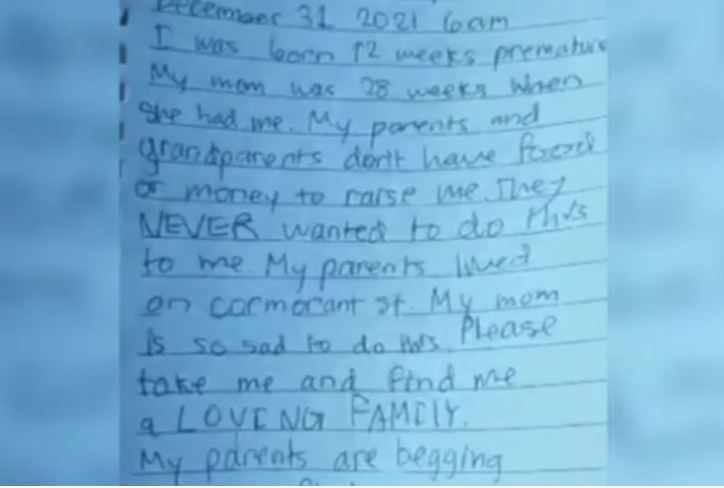 December 31 2021 6am
I was born 12 weeks premature
My mom was 28 weeks when
she had me. My parents and
grandparents dont have food
or money to raise me. They
NEVER wanted to do this
to me. My parents lived
on cormorant st. My mom
is so sad to do this. Please
take me and find me
a LOVING FAMILY.
My parents are begging